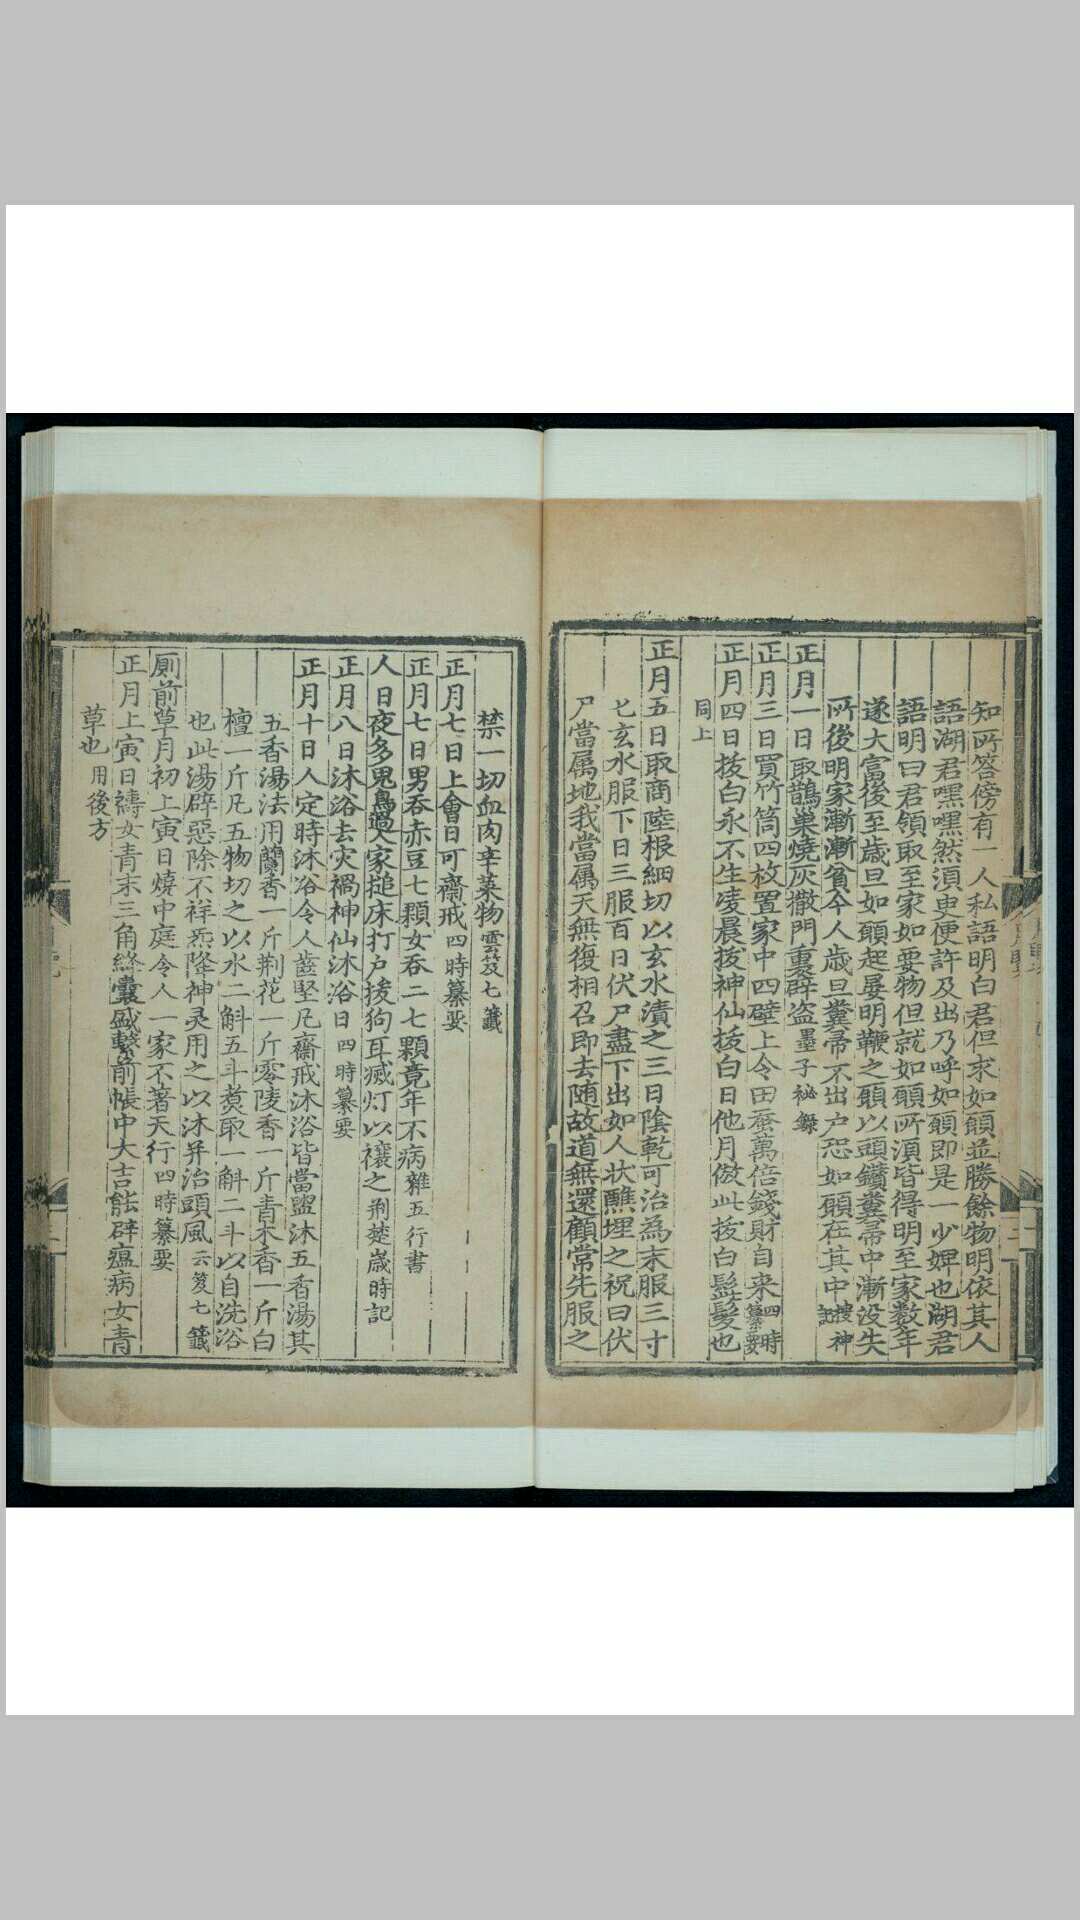 知所答傍有一人私語明白君但求如願並勝餘物明依其人
語湖君嘿嘿然湏臾便許及出乃呼如願即是一少婢也湖君
語明曰君領取至家如要物但就如願所湏皆得明至家数年
遂大富後至歲旦如願起晏明鞭之願以頭鑽糞帚中漸没失
所後明家漸漸貧今人歲旦糞帚不出户恐如願在其中搜神記
正月一日取鵲巢燒灰撒門裏辟盗墨子秘錄
正月三日買竹筒四枚置家中四壁上令田蚕萬倍錢財自来四時纂要
正月四日拔白永不生凌晨拔神仙拔白日他月倣此拔白髭髮也
同上
正月五日取商陸根細切以玄水漬之三日隂乾可治為末服三寸
匕玄水服下日三服百日伏尸盡下出如人状醮埋之祝曰伏
尸當属地我當属天無復相召即去随故道無還顧常先服之
禁一切血肉辛菜物雲笈七籤
正月七日上會日可齋戒四時纂要
正月七日男吞赤豆七顆女吞二七顆竟年不病雜五行書
人日夜多鬼鳥過人家搥床打户捩狗耳滅灯以禳之荆楚歲時記
正月八日沐浴去灾禍神仙沐浴日四時纂要
正月十日人定時沐浴令人齒堅凡齋戒沐浴皆當盥沐五香湯其
五香湯法用蘭香一斤荆花一斤零陵香一斤青木香一斤白
檀一斤凡五物切之以水二斛五斗煑取一斛二斗以自洗浴
也此湯辟惡除不祥炁降神灵用之以沐并治頭風云笈七籤
厠前草月初上寅日燒中庭令人一家不著天行四時纂要
正月上寅日擣女青末三角絳囊盛繫前帳中大吉能辟瘟病女青
草也用後方